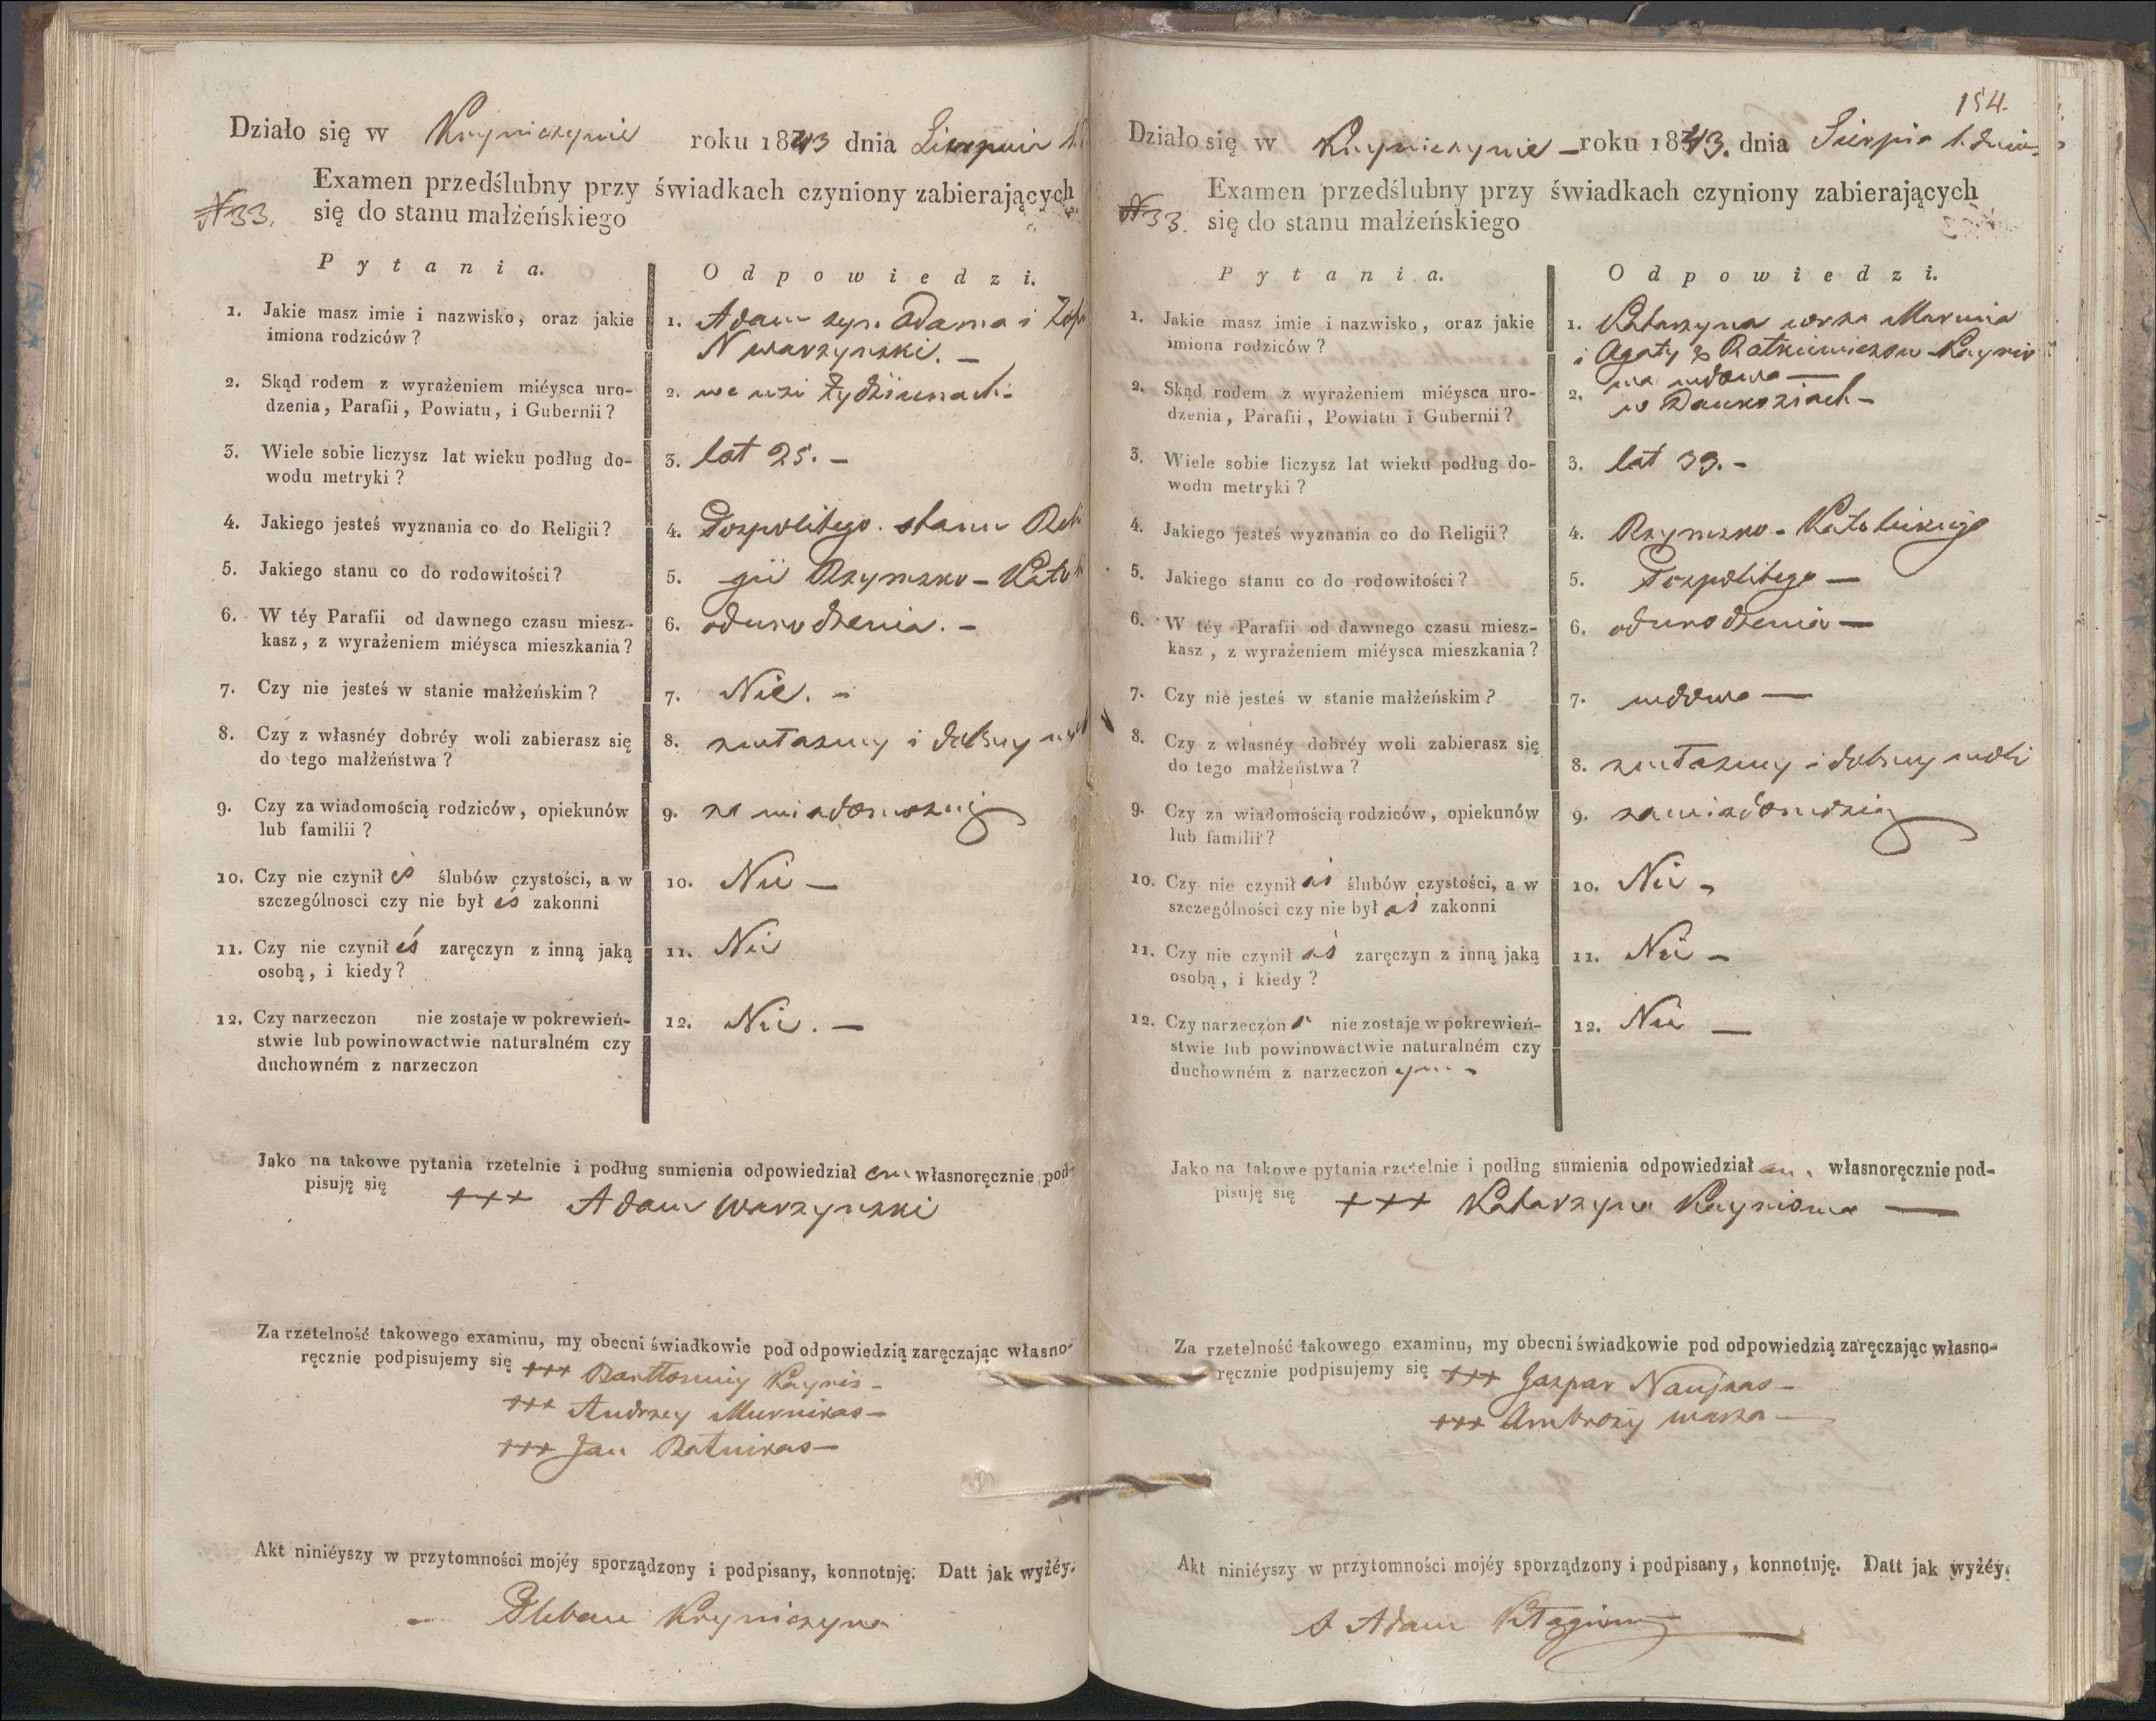 Działo się w Kryniczynie roku 1843 dnia Sierpnia 1.
Examen przedślubny przy świadkach czyniony zabierających
N 33. się do stanu małżeńskiego
Pytania. Odpowiedzi.
1. Jakie masz imie i nazwisko, oraz jakie imiona rodziców?
1. Adam syn Adama i
Warzynski. —
2. Skąd rodem z wyrażeniem miéysca urodzenia, Parafii, Powiatu, i Gubernii?
2. we wsi Żydziunach
3. Wiele sobie liczysz lat wieku podług dowodu metryki?
3. lat 25. —
4. Jakiego jesteś wyznania co do Religii?
4. Pospolitego stanu Reli
5. Jakiego stanu co do rodowitości?
5. gii Rzymsko - Kato
6. W téy Parafii od dawnego czasu mieszkasz, z wyrażeniem miéysca mieszkania?
6. od urodzenia. —
7. Czy nie jesteś w stanie małżeńskim?
7. Nie. —
8. Czy z własnéy dobréy woli zabierasz się do tego małżeństwa?
8. z własney i dobrey
9. Czy za wiadomością rodziców, opiekunów lub familii?
9. za wiadomością
10. Czy nie czynił eś ślubów czystości, a w szczególnosci czy nie był eś zakonni
10. Nie —
11. Czy nie czynił eś zaręczyn z inną jaką osobą, i kiedy?
11. Nie
12. Czy narzeczon nie zostaje w pokrewieństwie lub powinowactwie naturalném czy duchowném z narzeczon
12. Nie. —
Jako na takowe pytania rzetelnie i podług sumienia odpowiedział em własnoręcznie pod-
pisuję się +++ Adam Warzynski
Za rzetelność takowego examinu, my obecni świadkowie pod odpowiedzią zaręczając własno-
ręcznie podpisujemy się +++ Bartłomiey Kaynis —
+++ Andrzey Murnikas —
+++ Jan Ratnikas —
Akt niniéyszy w przytomności mojéy sporządzony i podpisany, konnotuję. Datt jak wyżéy.
— Pleban Kryniczyna
154.
Działo się w Kryniczynie — roku 1843. dnia Sierpnia 1. dnia
Examen przedślubny przy świadkach czyniony zabierających
N 33. się do stanu małżeńskiego
Pytania. Odpowiedzi.
1. Jakie masz imie i nazwisko, oraz jakie imiona rodziców?
1. Katarzyna Marcina
i Agaty z Ratkiewiczow Kaynio
wa wdowa —
2. Skąd rodem z wyrażeniem miéysca urodzenia, Parafii, Powiatu i Gubernii?
2. w Dauksziach —
3. Wiele sobie liczysz lat wieku podług dowodu metryki?
3. lat 39. —
4. Jakiego jesteś wyznania co do Religii?
4. Rzymsko - Katolickiego
5. Jakiego stanu co do rodowitości?
5. Pospolitego —
6. W téy Parafii od dawnego czasu mieszkasz, z wyrażeniem miéysca mieszkania?
6. od urodzenia —
7. Czy nie jesteś w stanie małżeńskim?
7. wdowa —
8. Czy z własnéy dobréy woli zabierasz się do tego małżeństwa?
8. z własney i dobrey woli
9. Czy za wiadomością rodziców, opiekunów lub familii?
9. za wiadomością
10. Czy nie czynił aś ślubów czystości, a w szczególności czy nie był aś zakonni
10. Nie —
11. Czy nie czynił aś zaręczyn z inną jaką osobą, i kiedy?
11. Nie —
12. Czy narzeczon a nie zostaje w pokrewieństwie lub powinowactwie naturalném czy duchowném z narzeczon ym —
12. Nie —
Jako na takowe pytania rzetelnie i podług sumienia odpowiedział am własnoręcznie pod-
pisuję się +++ Katarzyna Kayniowa —
Za rzetelność takowego examinu, my obecni świadkowie pod odpowiedzią zaręczając własno-
ręcznie podpisujemy się +++ Gaspar Naujkas —
+++ Ambroży —
Akt niniéyszy w przytomności mojéy sporządzony i podpisany, konnotuję. Datt jak wyżéy.
Adam